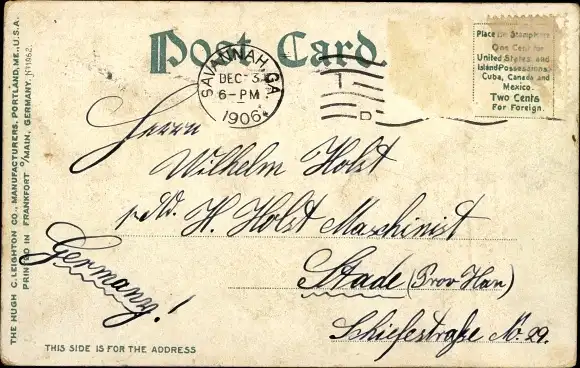 Post Card
Place the Stamp here
One Cent for
United States and
Island Possessions,
Cuba, Canada and
Mexico.
Two Cents
For Foreign.
SAVANNAH, GA.
DEC 3
6-PM
1906
D
Herrn
Wilhelm Holst
H. Holst Maschinist
Stade (Prov Han)
Schiefestraße No. 29.
Germany!
THIS SIDE IS FOR THE ADDRESS
THE HUGH C. LEIGHTON CO., MANUFACTURERS, PORTLAND, ME., U.S.A.
PRINTED IN FRANKFORT O/MAIN, GERMANY. No 1962.